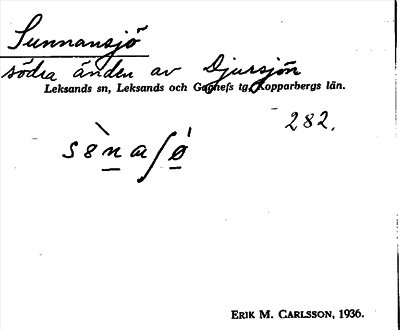 Sunnansjö
södra änden av Djursjön
Leksands sn, Leksands och Gagnefs tg, Kopparbergs län.
282.
Erik M. Carlsson, 1936.